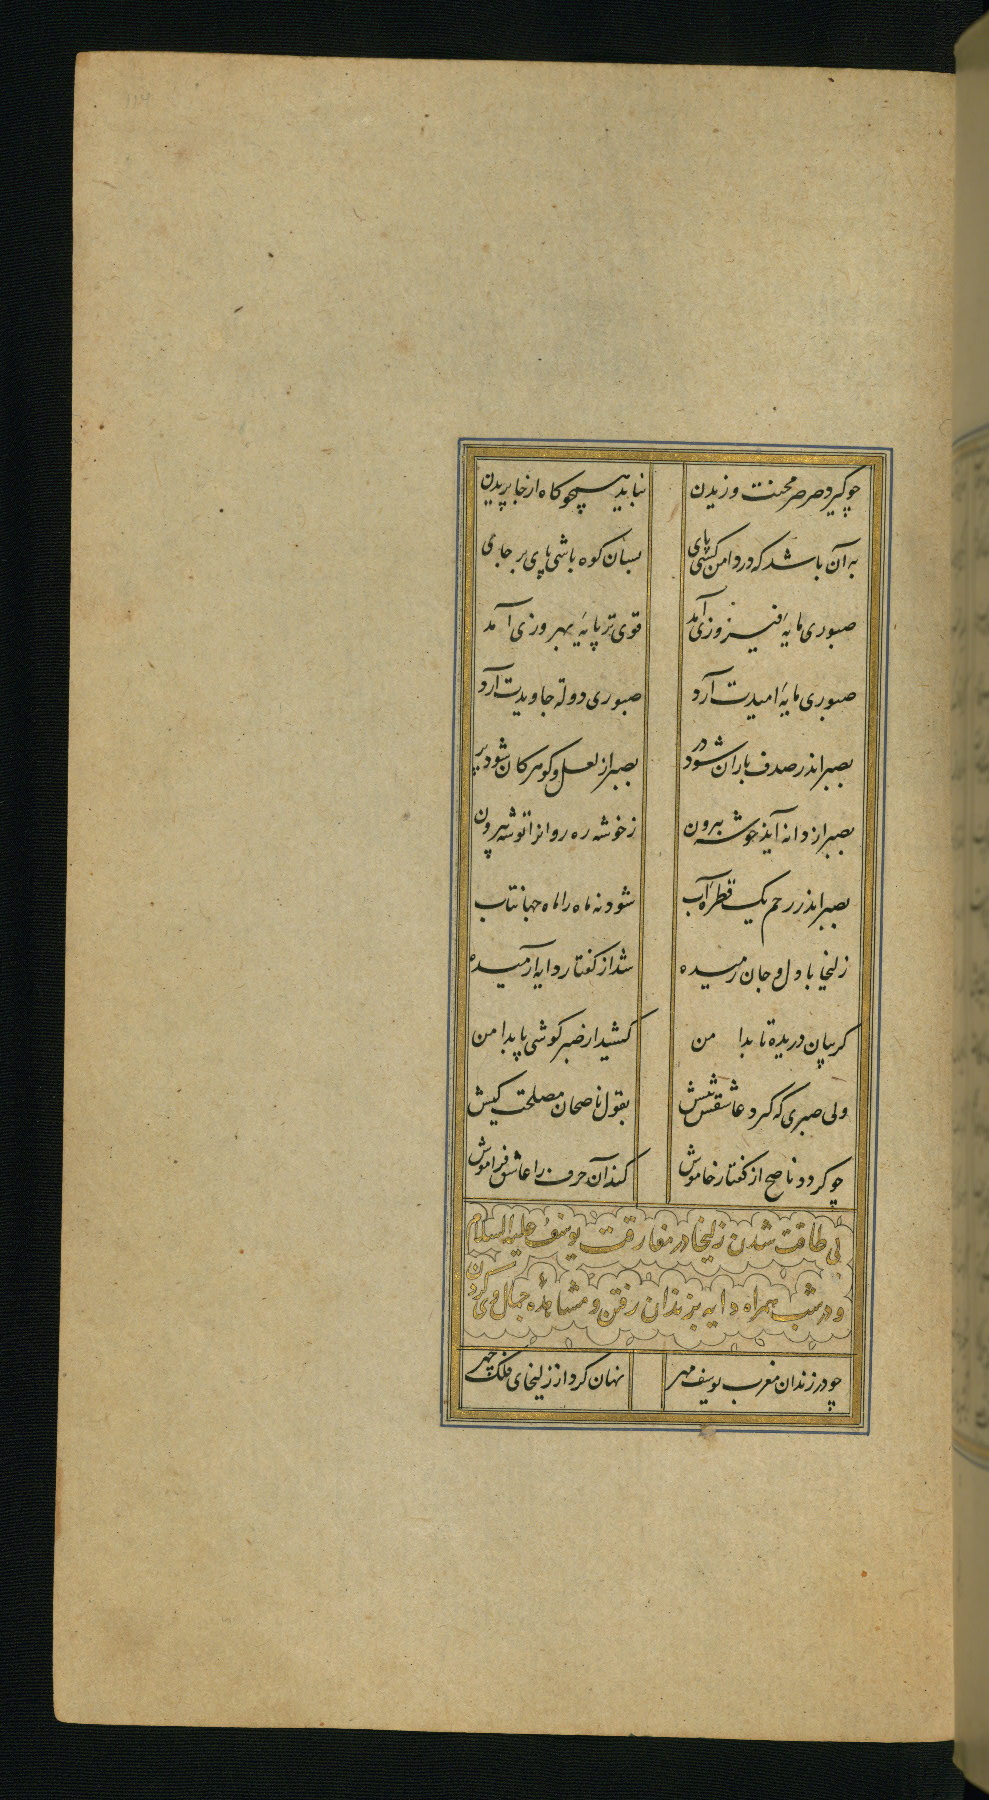 چو گیرد صرصر محنت وزیدن نباید همچو کاه از جا پریدن
به آن باشد که در دامن کشی پای بسان کوه باشی پای بر جای
صبوری مایهٔ فیروزی آمد قوی تر پایهٔ بهروزی آمد
صبوری مایهٔ امیدت آرد صبوری دولة جاویدت آرد
بصبر اندر صدف باران شود در بصبر از لعل و گوهر کان شود پر
بصبر از دانه آید خوشه بیرون ز خوشه ره روانرا توشه بیرون
بصبر اندر رحم یک قطره آب شود نه ماه را ماه جهانتاب
زلیخا با دل و جان رمیده شد از گفتار دایه آرمیده
گریبان دریده تا بدامن کشید از صبر گوشی پا بدامن
ولی صبری که گیرد عاشقش پیش بقول ناصحان مصلحت کیش
چو گردد ناصح از گفتار خاموش کند آن حرف را عاشق فراموش
بی طاقت شدن زلیخا در مفارقت یوسف علیه السلام
و در شب همراه دایه بزندان رفتن و مشاهدهٔ جمال وی کردن
چو در زندان مغرب یوسف مهر نهان کرد از زلیخای فلک چهر